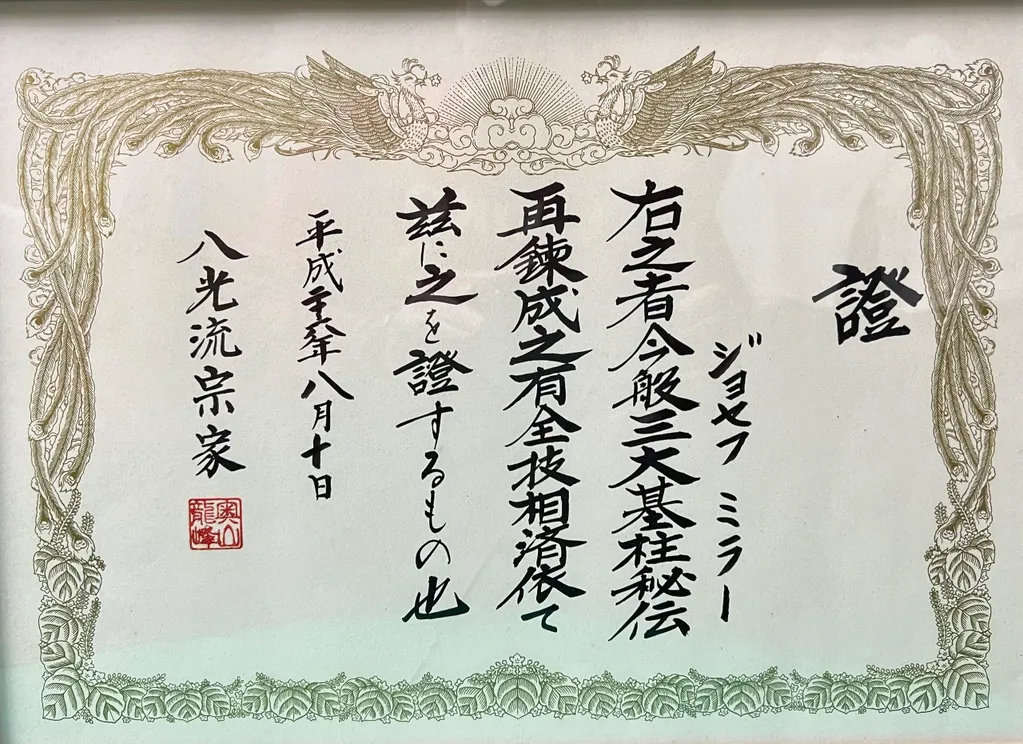 證
ジョセフ ミラー
右之者今般三大基柱秘伝
再錬成之有全技相済依て
茲に之を證するもの也
平成年八月十日
八光流宗家
奥山
龍峰